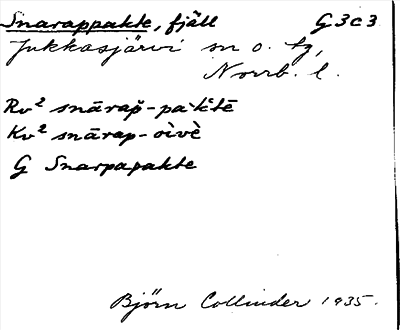 Snarappakte, fjäll G 3 c 3
Jukkasjärvi sn o. tg,
Norrb. l.
Rv² snārap̆-pa·k̀tē
Kv² snārap-oìvè
G Snarpapakte
Björn Collinder 1935.